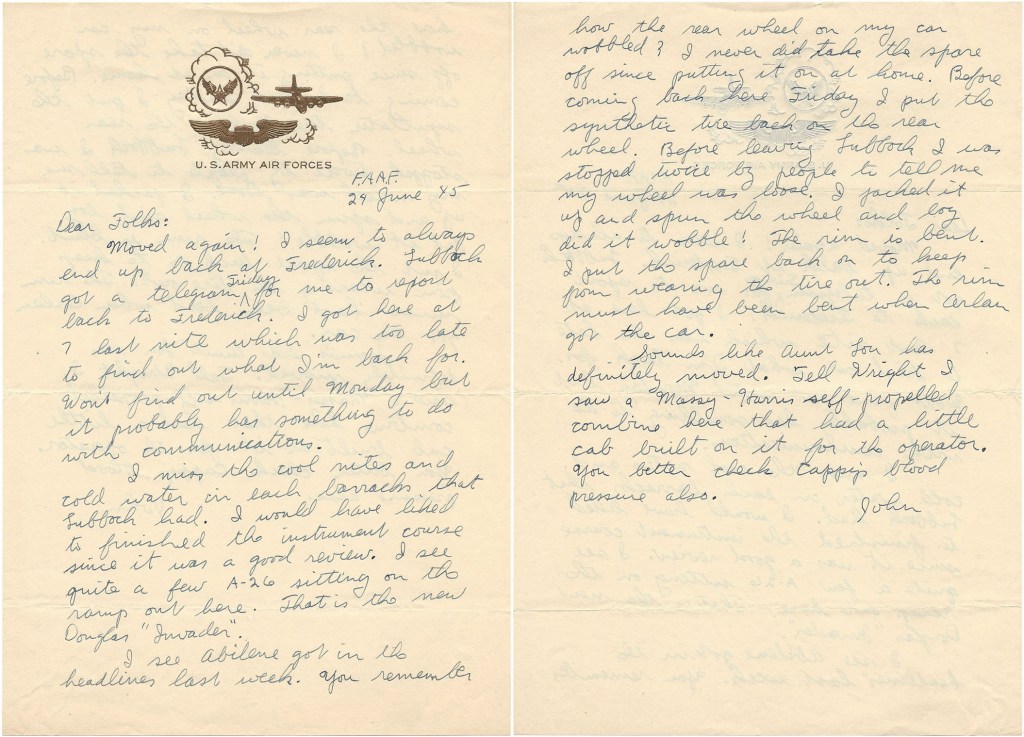 U.S. ARMY AIR FORCES
F.A.A.F.
24 June 45
Dear Folks:
Moved again! I seem to always
end up back at Frederick. Lubbock
got a telegram Friday for me to report
back to Frederick. I got here at
7 last nite which was too late
to find out what I'm back for.
Wont find out until Monday but
it probably has something to do
with communications.
I miss the cool nites and
cold water in each barracks that
Lubbock had. I would have liked
to finished the instrument course
since it was a good review. I see
quite a few A-26 sitting on the
ramp out here. That is the new
Douglas "Invader".
I see Abilene got in the
headlines last week. You remember
how the rear wheel on my car
wobbled? I never did take the spare
off since putting it on at home. Before
coming back here Friday I put the
synthetic tire back on the rear
wheel. Before leaving Lubbock I was
stopped twice by people to tell me
my wheel was loose. I jacked it
up and spun the wheel and boy
did it wobble! The rim is bent.
I put the spare back on to keep
from wearing the tire out. The rim
must have been bent when Arlan
got the car.
Sounds like Aunt Lou has
definitely moved. Tell Wright I
saw a Massey-Harris self-propelled
combine here that had a little
cab built on it for the operator.
You better check Cappy's blood
pressure also.
John